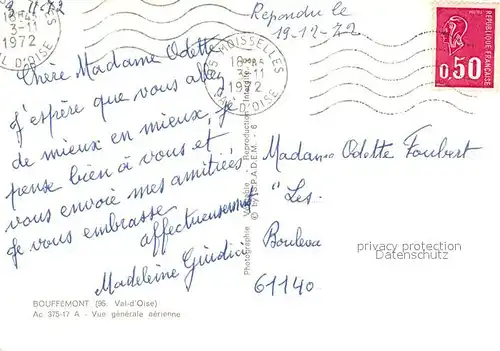 3-11-72
18H45
3-11
1972
VAL D'OISE
Chère Madame Odette
J'espère que vous allez
de mieux en mieux, je
pense bien à vous et
vous envoie mes amitiés
Je vous embrasse
affectueusement
Madeleine Giudici
BOUFFEMONT (95. Val-d'Oise)
Ac 375-17 A - Vue générale aérienne
Photographie Véritable - Reproduction Interdite
© by S.P.A.D.E.M. - 6
Répondu le
19-12-72
95 MOISSELLES
18H45
3-11
1972
VAL D'OISE
REPUBLIQUE FRANÇAISE
0,50
Madame Odette Foubert
"Les
Bouleva
privacy protection
www.delcampe.net
61140